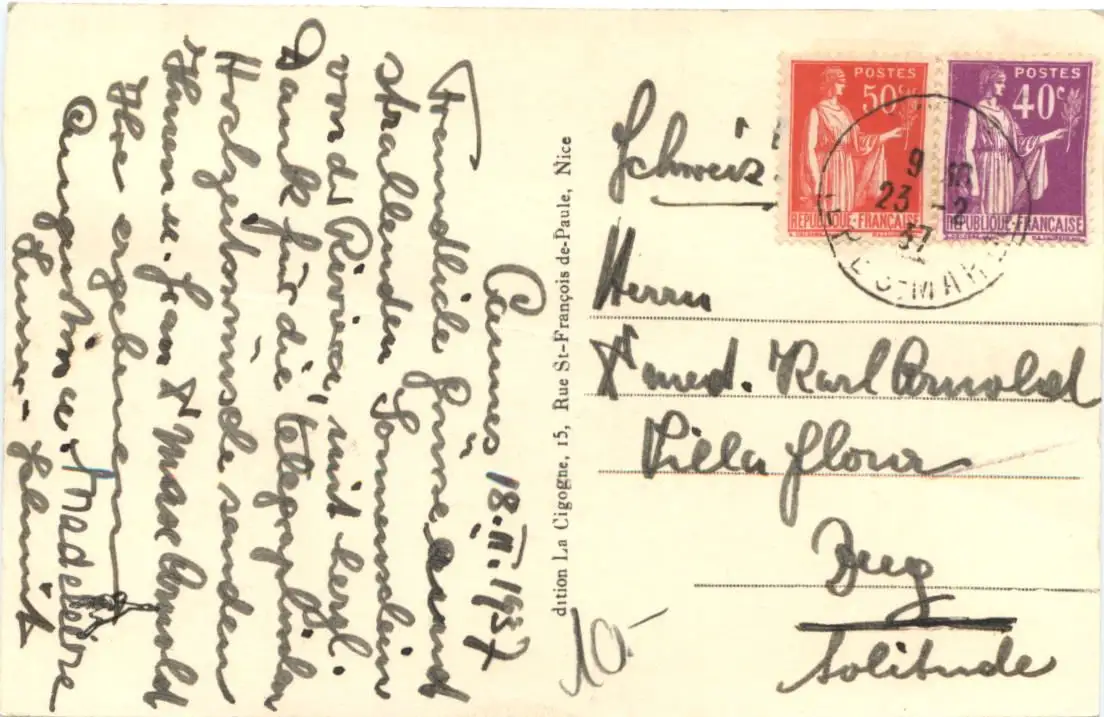 Cannes 18.II.1937
Freundliche Grüsse
strahlenden Sonnenschein
von d. Riviera, mit herzl.
Dank für die telegraphischen
Hochzeitswünsche senden
Ihnen u. Dr Max Arnold
Ihre ergebenen
Augustin u. Madeleine
dition La Cigogne, 15, Rue St-François de-Paule, Nice
POSTES
50c
REPUBLIQUE-FRANÇAISE
POSTES
40c
REPUBLIQUE-FRANÇAISE
9
23 -2
37
Schweiz.
Herrn
Dr med. Karl Arnold
Villa Flora
Zug
Solitude
10.-